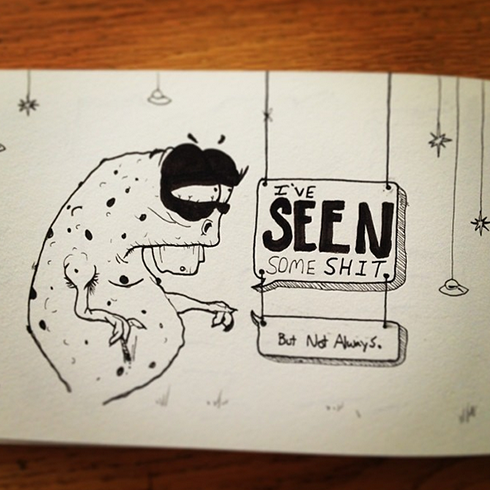 I'VE
SEEN
SOME SHIT
But Not Always.